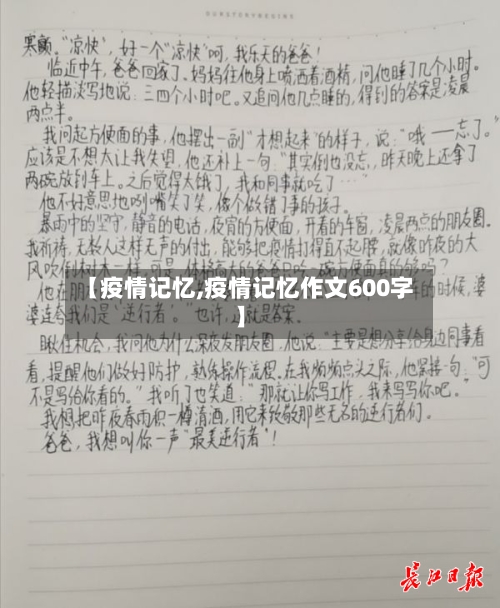 寒颤。"凉快",好一个"凉快"呵,我乐天的爸爸!
临近中午,爸爸回家了。妈妈往他身上喷洒着酒精,问他睡了几个小时。
他轻描淡写地说:三四个小时吧。又追问他几点睡的,得到的答案是凌晨
两点半。
我问起方便面的事,他摆出一副"才想起来"的样子,说:"哦——忘了。"
应该是不想太让我失望,他还补上一句:"其实倒也没忘,昨天晚上还拿了
两碗放到车上。之后觉得太饿了,我和同事就吃了……"
他不好意思地咧嘴笑了笑,像个做错了事的孩子。
暴雨中的坚守,静音的电话,夜宵的方便面,开着的车窗,凌晨两点的朋友圈。
我祈祷,无数人这样无声的付出,能够把疫情打得直不起腰,就像昨夜的大
风吹倒树木一样。可是,
他在朋 的时候,婆
婆连会我们是"逆行者"。"也许,这就是答案。
【疫情记忆,疫情记忆作文600字
】
瞅住机会,我问他为什么深夜发朋友圈,他说:"主要是想分享给身边同事看
看,提醒他们做好防护,熟练操作流程。在我频频点头之际,他坚接一句:"可
不是写给你看的。"我听了也笑道:"那就让你写工作,我来写写你吧。"
我想把昨夜春雨积一樽清酒,用它来致敬那些无名的逆行者们。
爸爸,我想叫你一声"最美逆行者"!
长江日报